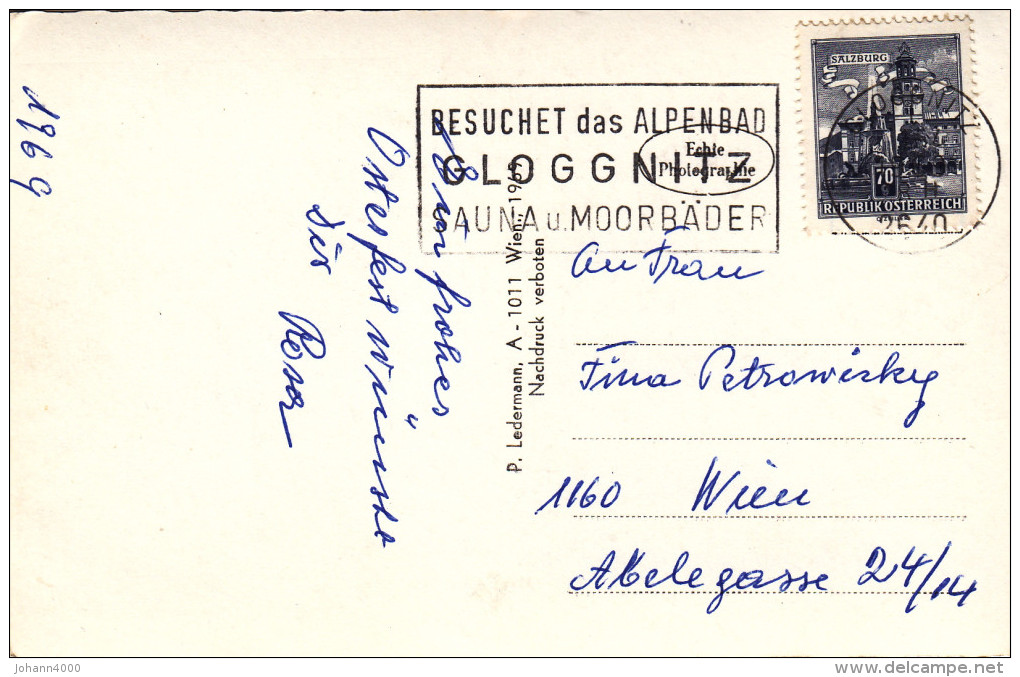 1969
Ein frohes
Osterfest wünscht
dir Rosa
BESUCHET das ALPENBAD
GLOGGNITZ
SAUNA u. MOORBÄDER
Echte
Photographie
SALZBURG
70
REPUBLIK ÖSTERREICH
2640
P. Ledermann, A - 1011 Wien, 1968
Nachdruck verboten
An Frau
Tina Petrowisky
1160 Wien
Abelegasse 24/14
johann4000
delcampe.net